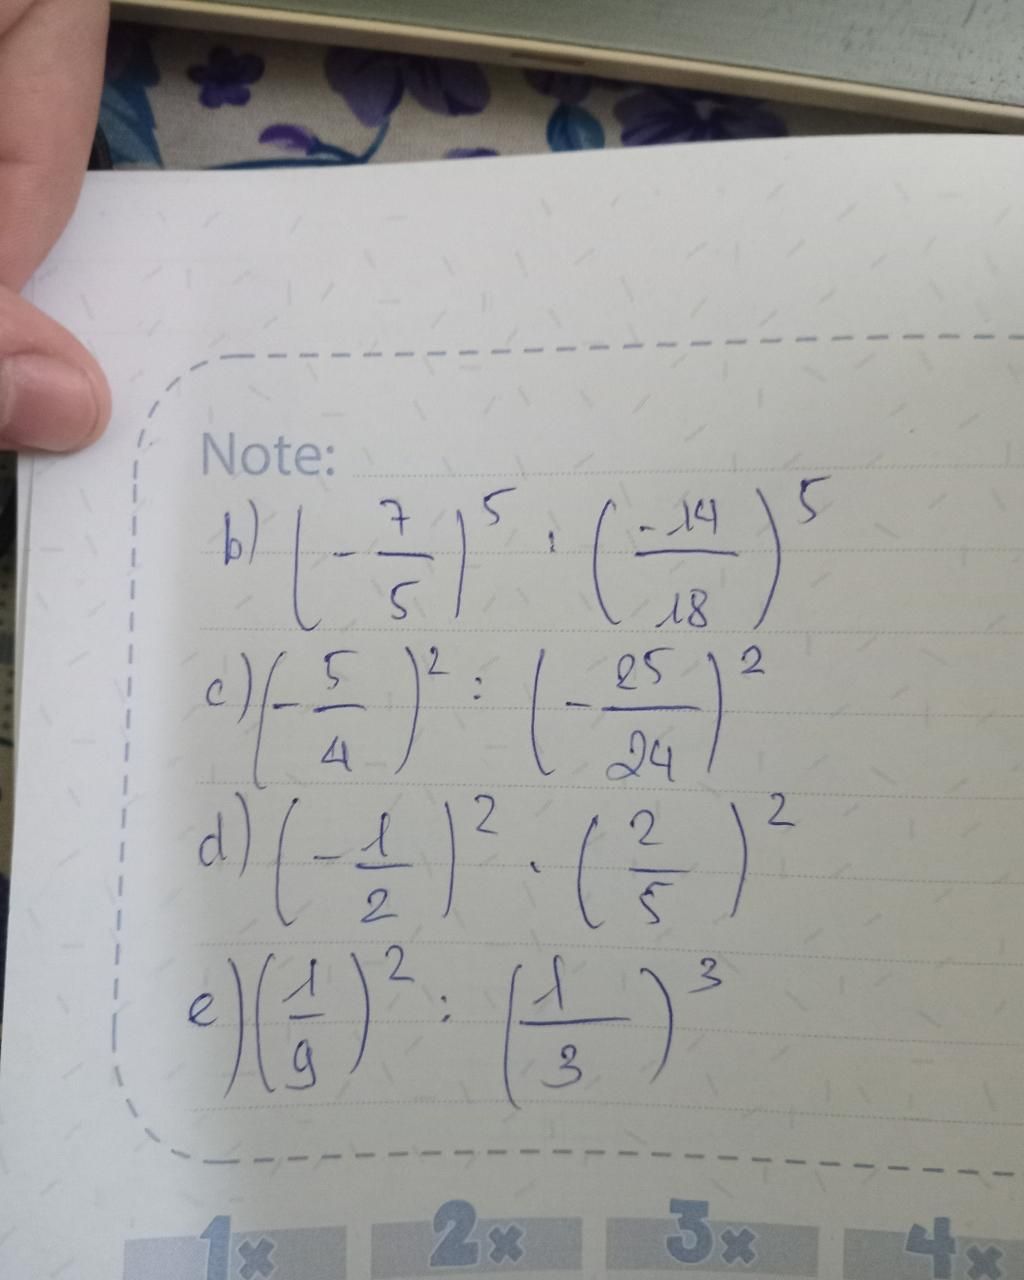 Note:
b) (- 7/5)^5 : (-14/18)^5
c) (- 5/4)^2 : (- 25/24)^2
d) (- 1/2)^2 . (2/5)^2
e) (1/9)^2 : (1/3)^3
1x 2x 3x 4x